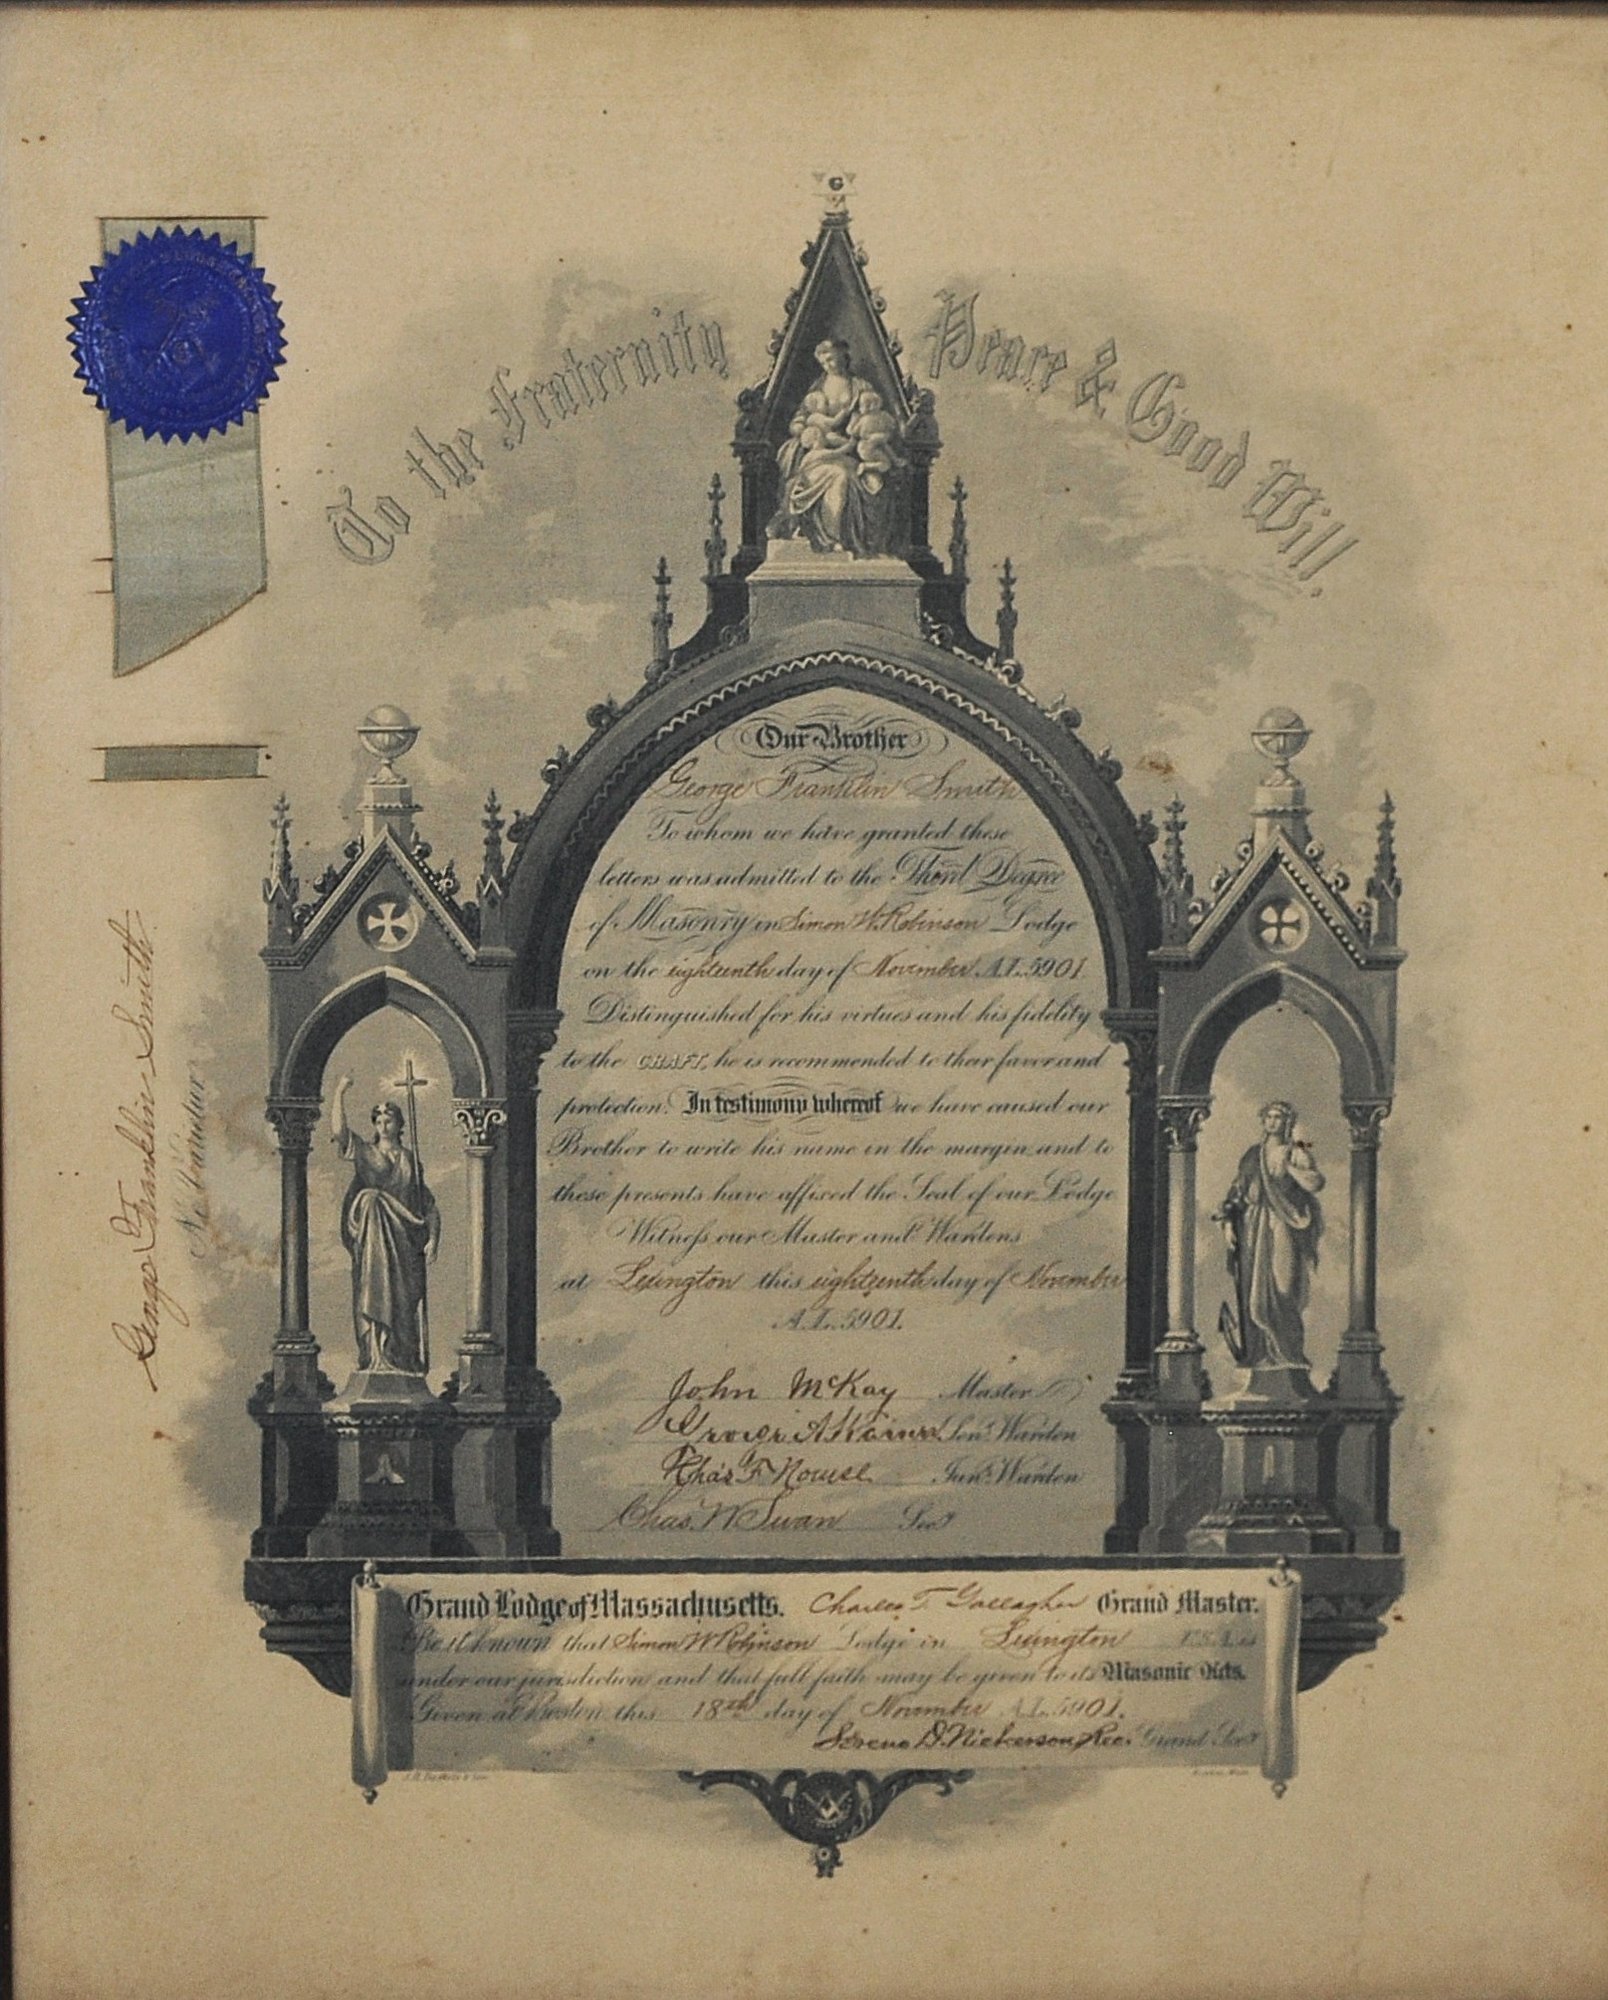 G
To the Fraternity Peace & Good Will.
Our Brother
George Franklin Smith
To whom we have granted these
letters was admitted to the Third Degree
of Masonry in Simon W. Robinson Lodge
on the eighteenth day of November A.L. 5901
Distinguished for his virtues and his fidelity
to the CRAFT, he is recommended to their favor and
protection. In testimony whereof we have caused our
Brother to write his name in the margin and to
these presents have affixed the Seal of our Lodge
Witness our Master and Wardens
at Lexington this eighteenth day of November
A.L. 5901.
John McKay Master
Senr. Warden
Chas F Nourse Junr. Warden
Chas. W Swan Secy
Grand Lodge of Massachusetts. Charles T. Gallagher Grand Master.
Be it known that Simon W Robinson Lodge in Lexington U.S.A. is
under our jurisdiction and that full faith may be given to its Masonic Acts.
Given at Boston this 18th day of November A.L. 5901.
Sereno D. Nickerson, Rec. Grand Secy
George Franklin Smith.
Ne Varietur